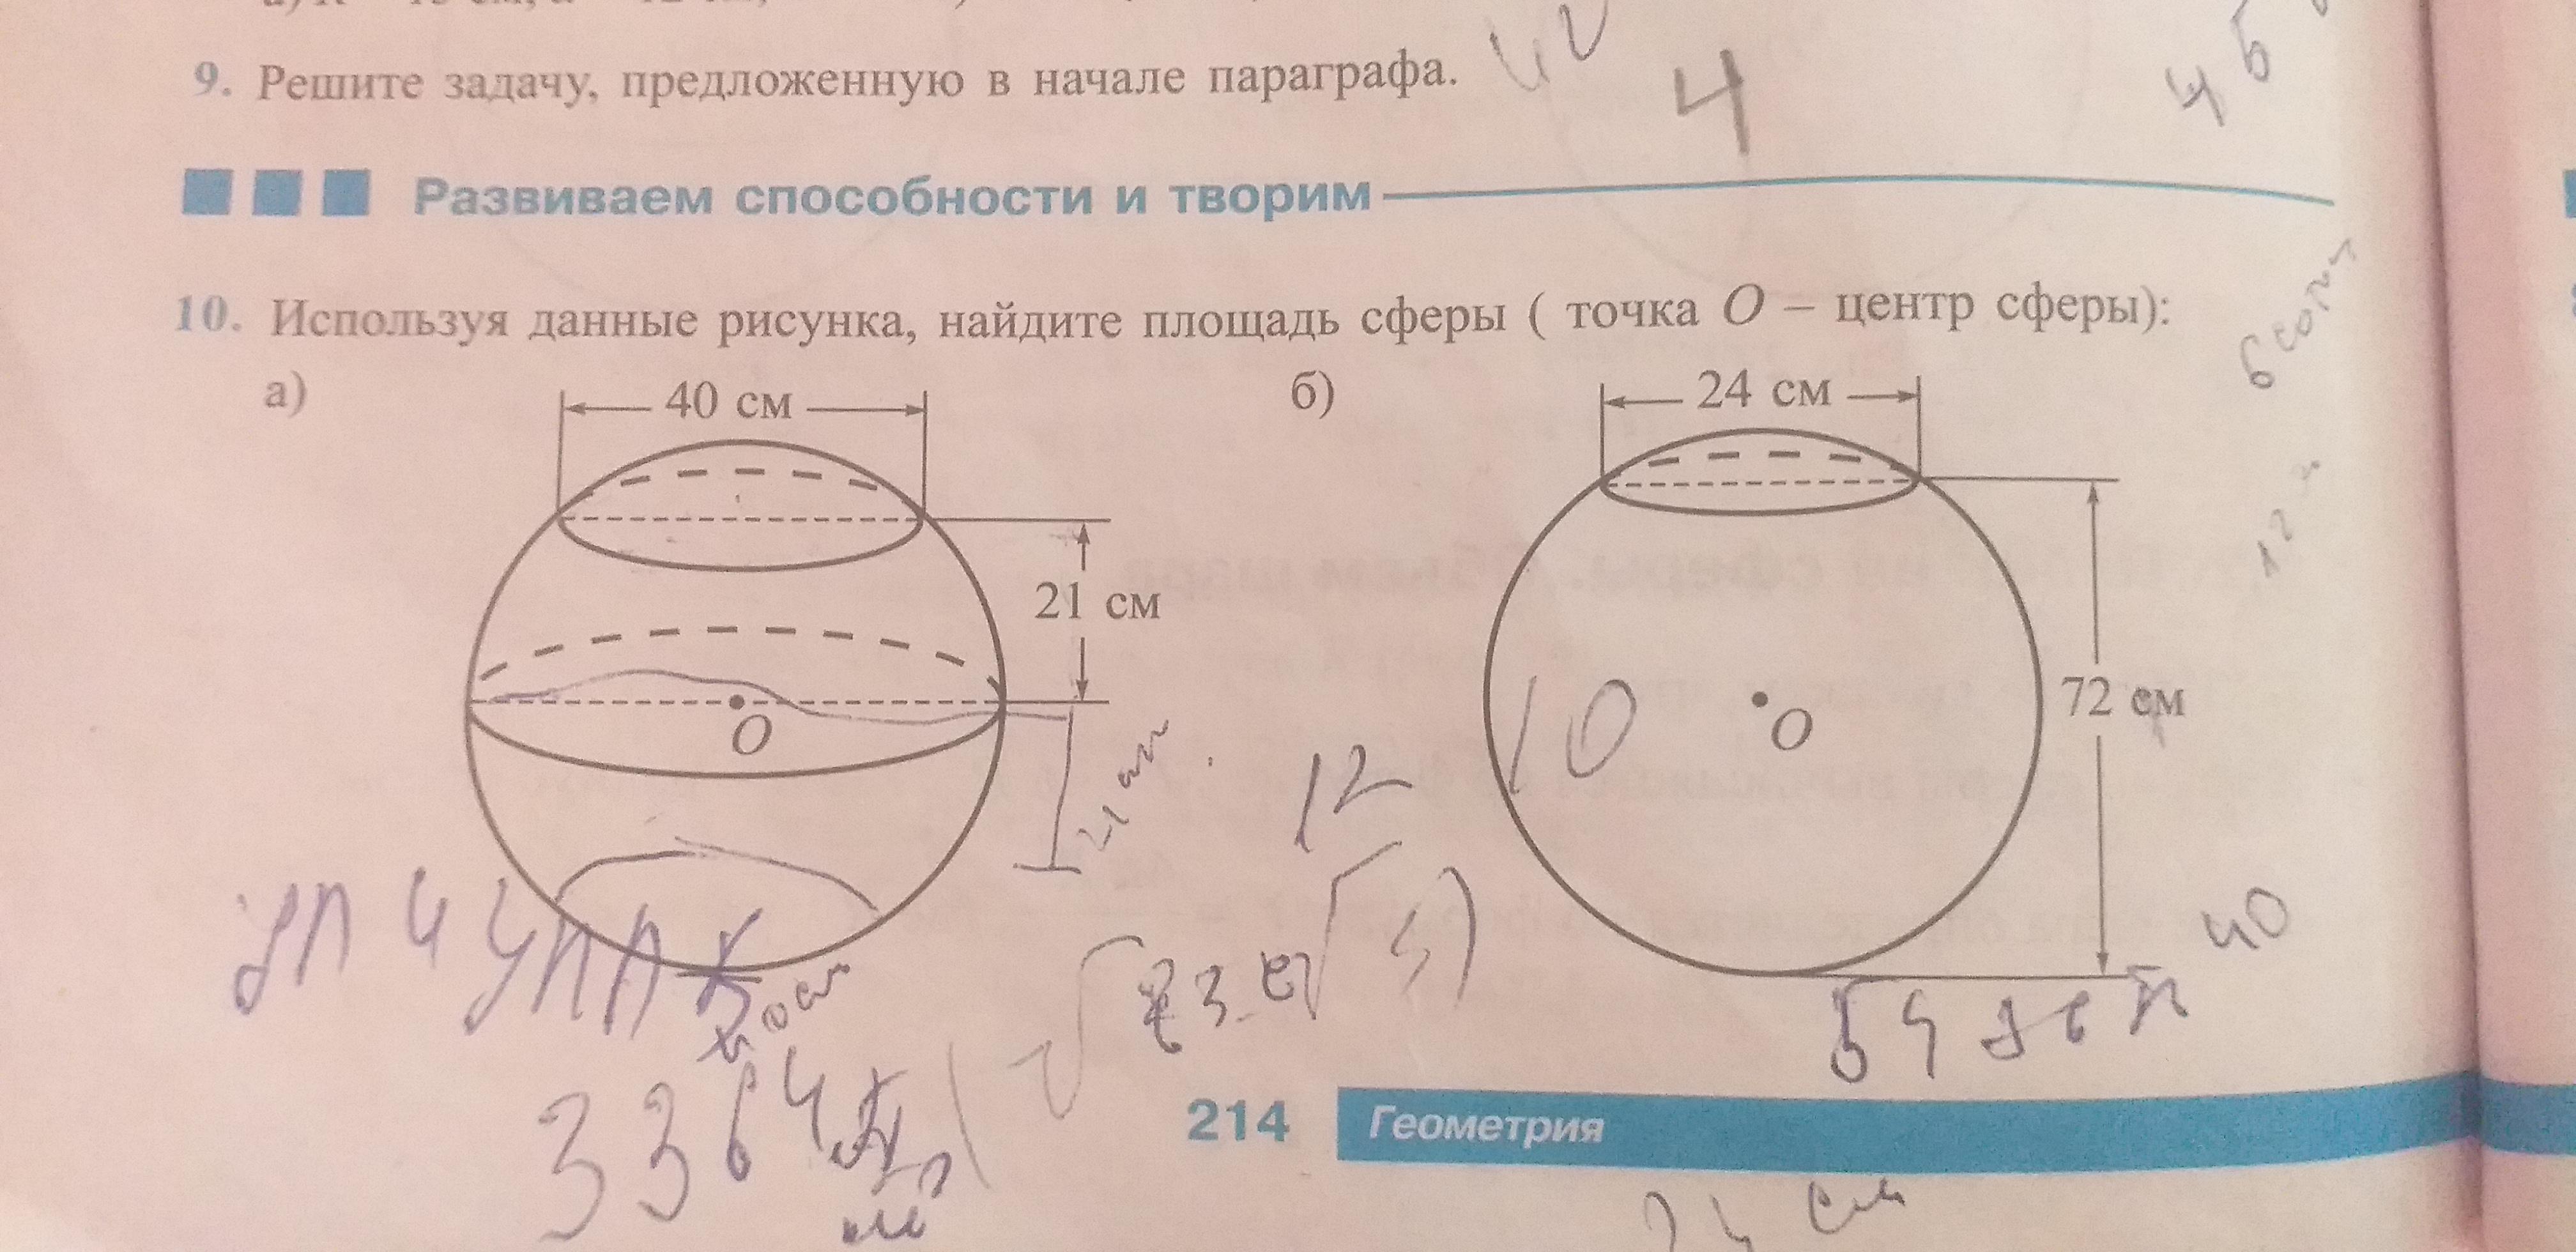 9. Решите задачу, предложенную в начале параграфа.
42
4
45
Развиваем способности и творим
10. Используя данные рисунка, найдите площадь сферы ( точка O – центр сферы):
а)
40 см
21 см
O
21 см
б)
24 см
72 см
O
10
12
40
3364
54
214 Геометрия
24 см